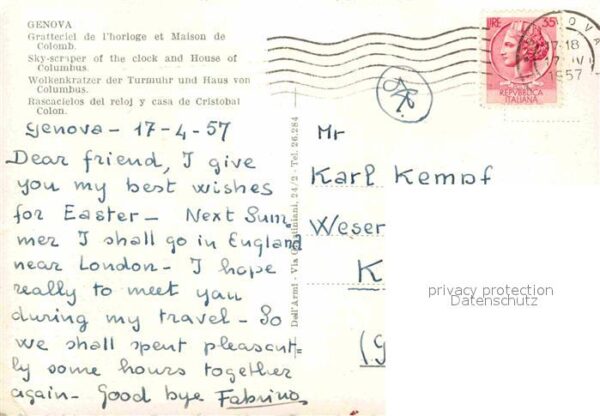 GENOVA
Gratteciel de l'horloge et Maison de
Colomb.
Sky-scraper of the clock and House of
Columbus.
Wolkenkratzer der Turmuhr und Haus von
Columbus.
Rascacielos del reloj y casa de Cristobal
Colon.
Genova - 17-4-57
Dear friend, I give
you my best wishes
for Easter - Next Sum
mer I shall go in England
near London - I hope
really to meet you
during my travel - So
we shall spent pleasant-
ly some hours together
again - Good bye Fabrino
Dell'Armi - Via Giustiniani, 24/2 - Tel. 26.284
LIRE 35
REPVBBLICA
ITALIANA
NOVA
17-18
17 IV
1957
Mr
Karl Kempf
Weser
K
(G
privacy protection
Datenschutz